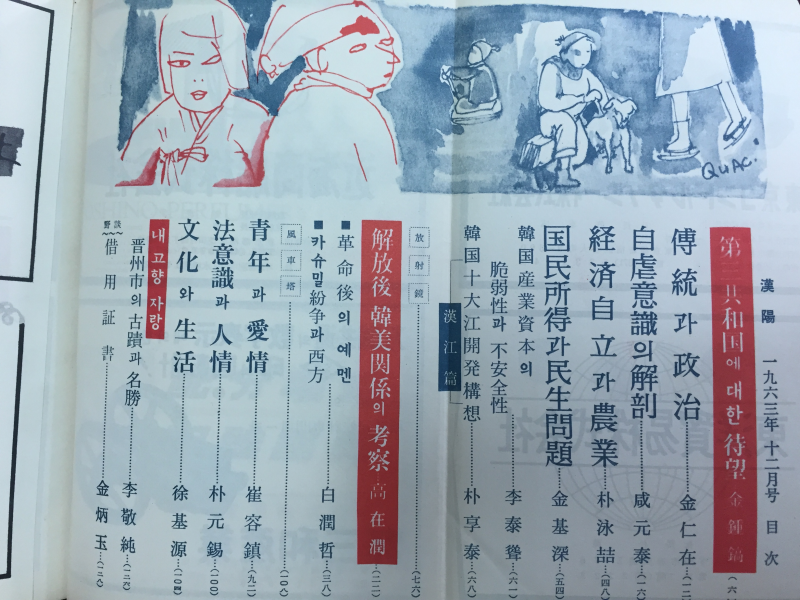 漢陽 一九六三年 十二月号 目次
第三共和国에 대한 待望 金鍾鎬 (六)
傅統과 政治 金仁在 (一二)
自虐意識의 解剖 咸元泰 (一六)
経済自立과 農業 朴泳喆 (四八)
国民所得과 民生問題 金基深 (五四)
韓国産業資本의
脆弱性과 不安全性 李泰聳 (六一)
韓国十大江開発構想 朴享泰 (六八)
漢江篇
放射鏡 (七六)
解放後 韓美関係의 考察 高在潤 (二二)
■革命後의 예멘
■카슈밀 紛争과 西方 白潤哲 (三八)
風車塔 (一〇八)
青年과 愛情 崔容鎮 (九二)
法意識과 人情 朴元錫 (一〇〇)
文化와 生活 徐基源 (一〇四)
내 고향 자랑
晋州市의 古蹟과 名勝 李敬純 (一二六)
野談
借用証書 金炳玉
QUAC.